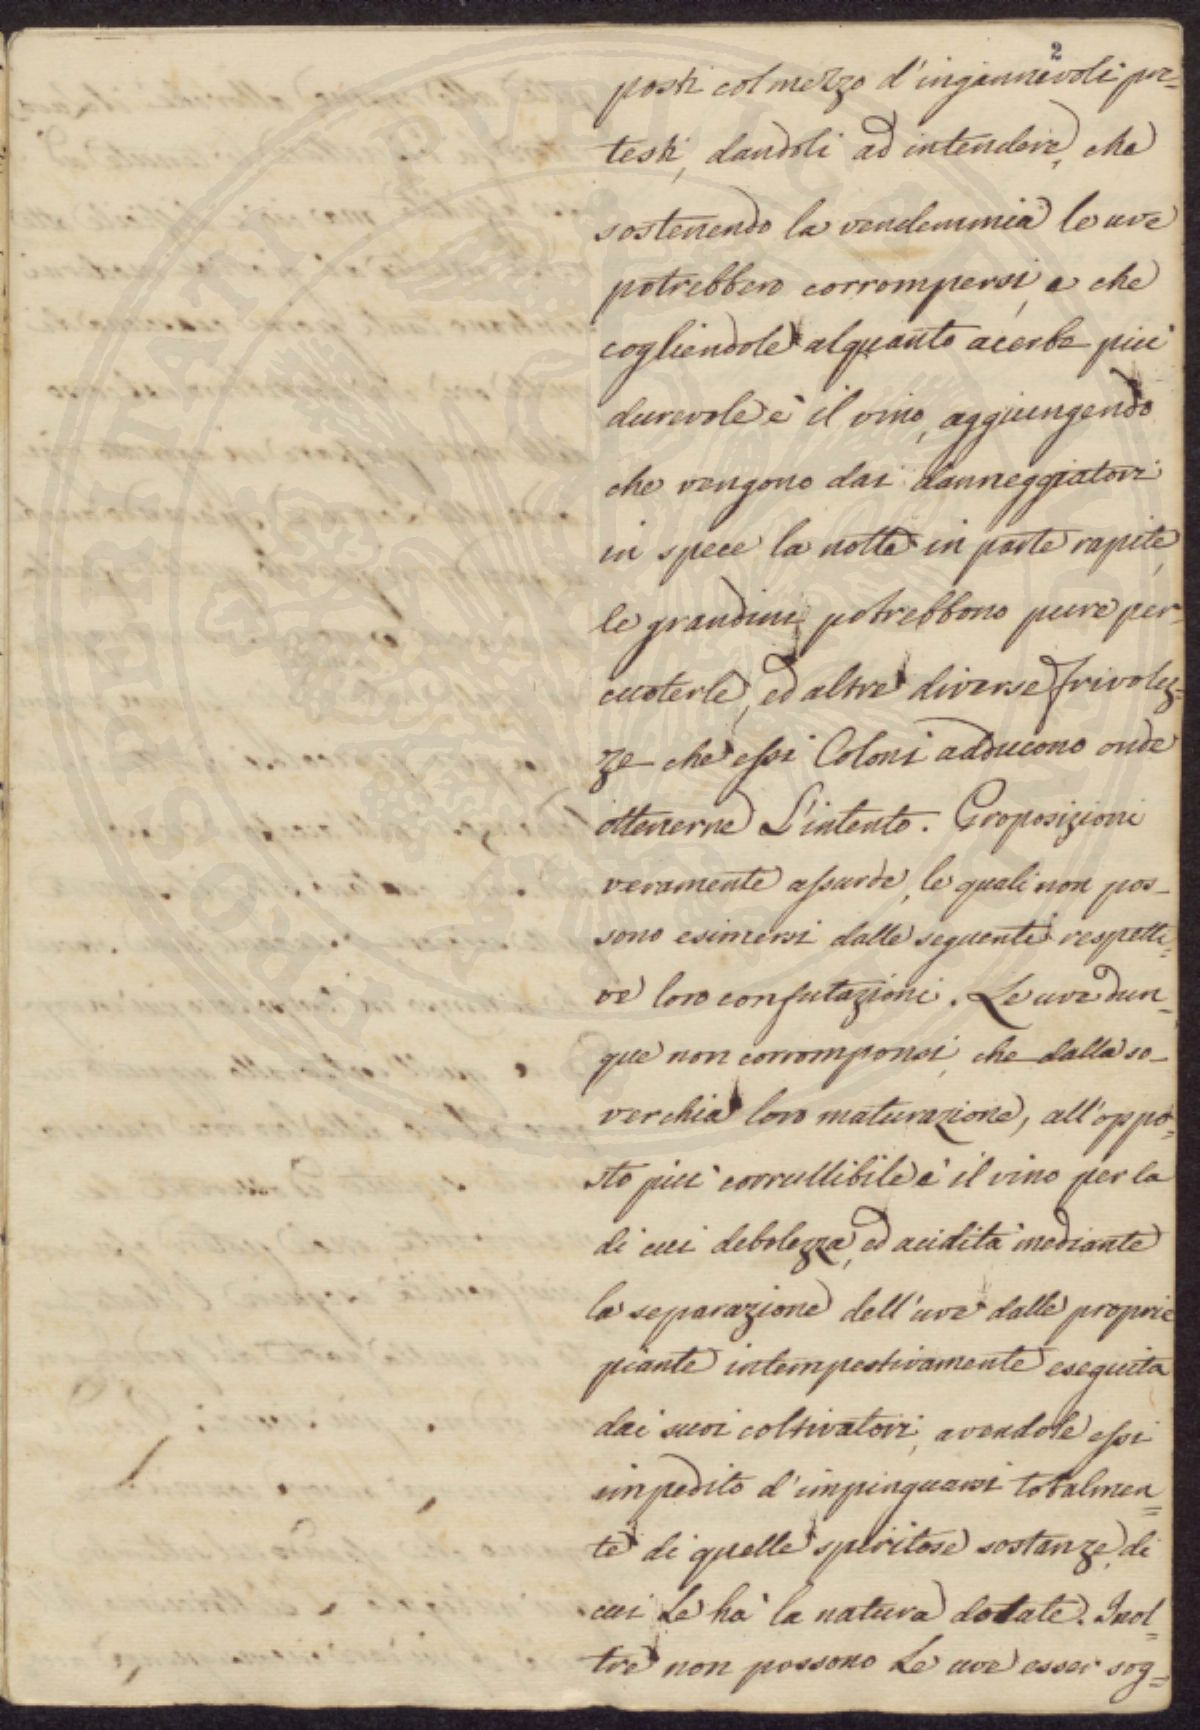 2
posti col mezzo d'ingannevoli pre=
testi, dandoli ad intendere, che
sostenendo la vendemmia le uve
potrebbero corrompersi, e che
cogliendole alquanto acerbe più
durevole è il vino, aggiungendo
che vengono dai danneggiatori
in spece la notte in parte rapite,
le grandini potrebbono pure per=
cuoterle, ed altre diverse frivolez=
ze che essi Coloni adducono onde
ottenerne L'intento. Proposizioni
veramente assurde, le quali non pos-
sono esimersi dalle seguenti respetti=
ve loro confutazioni. Le uve dun=
que non corromponsi, che dalla so-
verchia loro maturazione, all'oppo=
sto più corruttibile è il vino per la
di cui debolezza, ed acidità mediante
la separazione dell'uve dalle proprie
piante intempestivamente eseguita
dai suoi coltivatori, avendole essi
impedito d'impinguarsi totalmen=
te di quelle spiritose sostanze, di
cui Le ha' la natura dotate. Inol=
tre non possono Le uve esser sog=